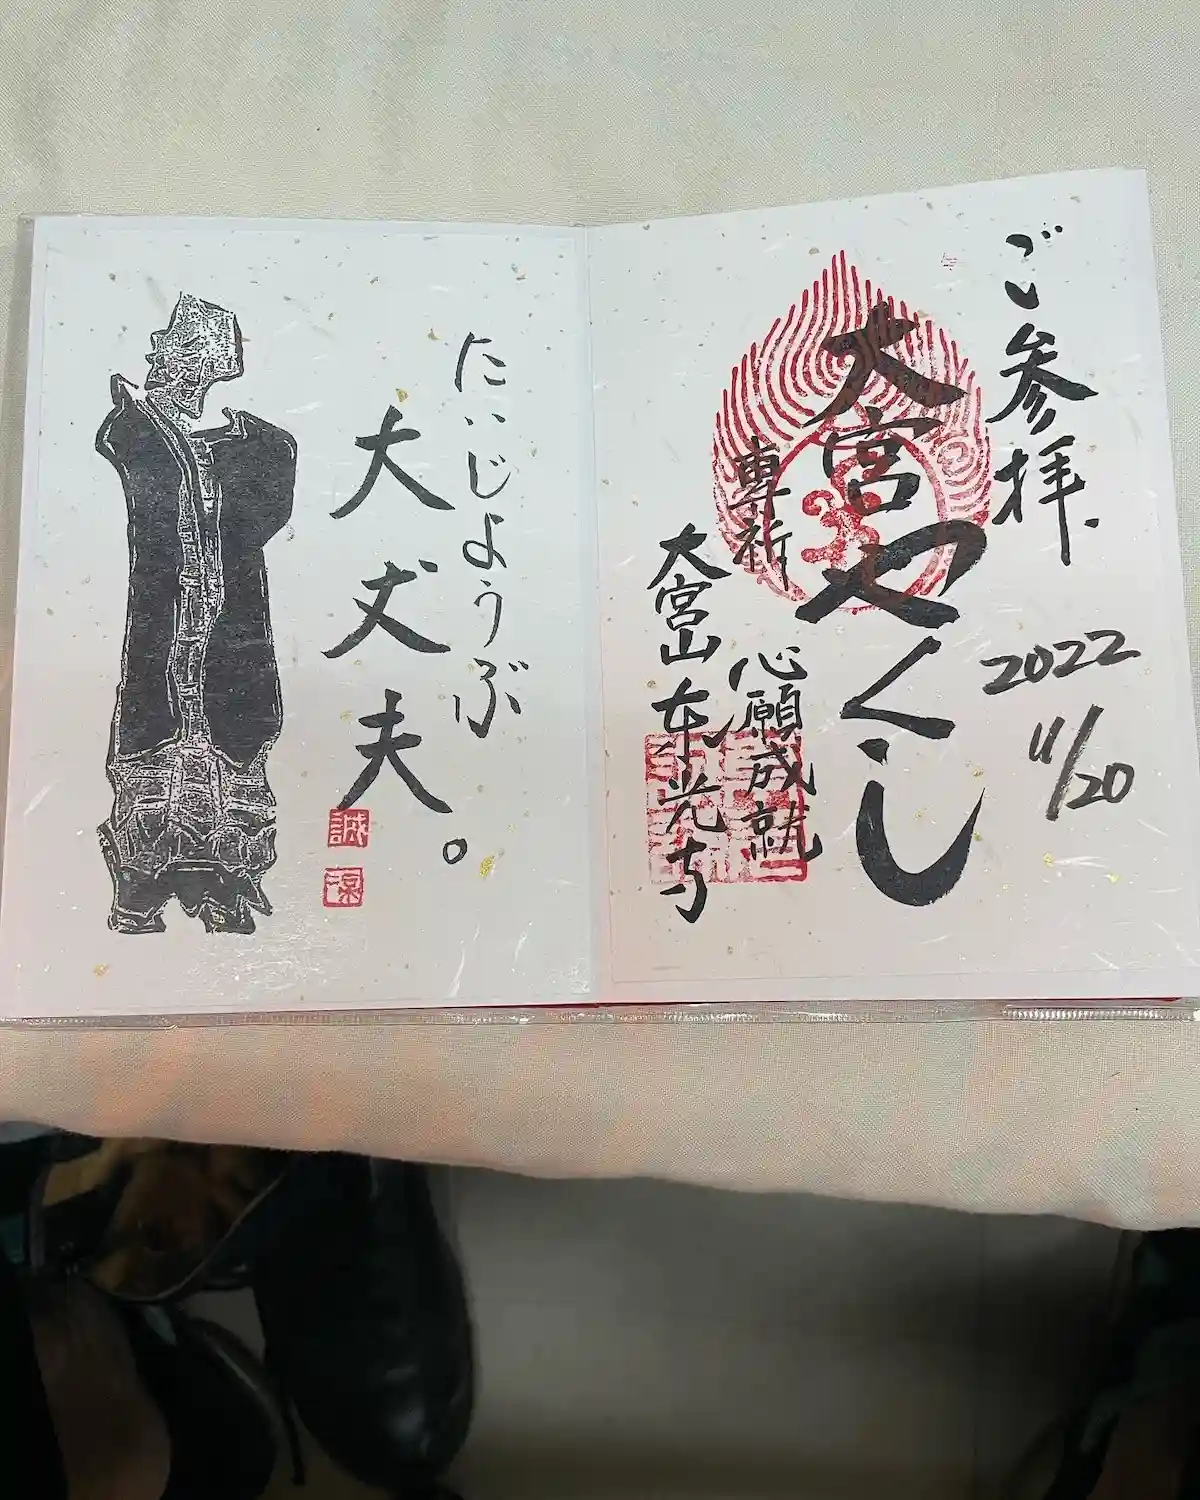 ご参拝.
2022
11/20
大宮やくし
専祈
心願成就
大宮山東光寺
たいじょうぶ
大丈夫。
誠